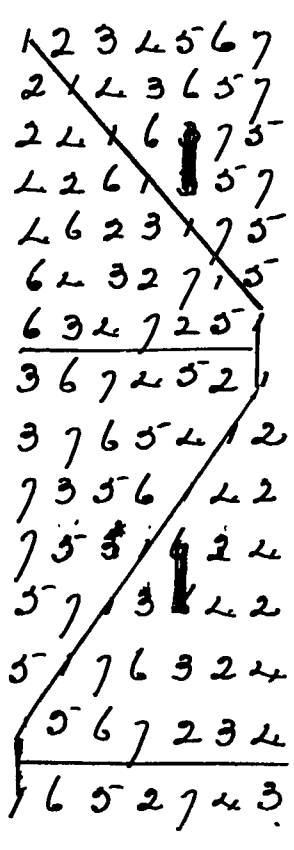 1 2 3 4 5 6 7
2 1 4 3 6 5 7
2 4 1 6 3 7 5
4 2 6 1 3 5 7
4 6 2 3 1 7 5
6 4 3 2 7 1 5
6 3 4 7 2 5 1
3 6 7 4 5 2 1
3 7 6 5 4 1 2
7 3 5 6 1 4 2
7 5 3 1 6 2 4
5 7 1 3 6 4 2
5 1 7 6 3 2 4
1 5 6 7 2 3 4
1 6 5 2 7 4 3